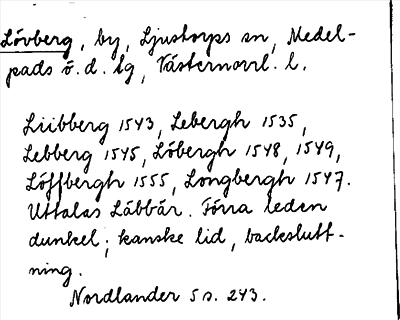 Lövberg, by, Ljustorps sn, Medel-
pads ö. d. tg, Västernorrl. l.
Liibberg 1543, Lebergh 1535,
Lebberg 1545, Löbergh 1548, 1549,
Löffbergh 1555, Longbergh 1547.
Uttalas Läbbär. Förra leden
dunkel; kanske lid, backslutt-
ning.
Nordlander 5 s. 243.